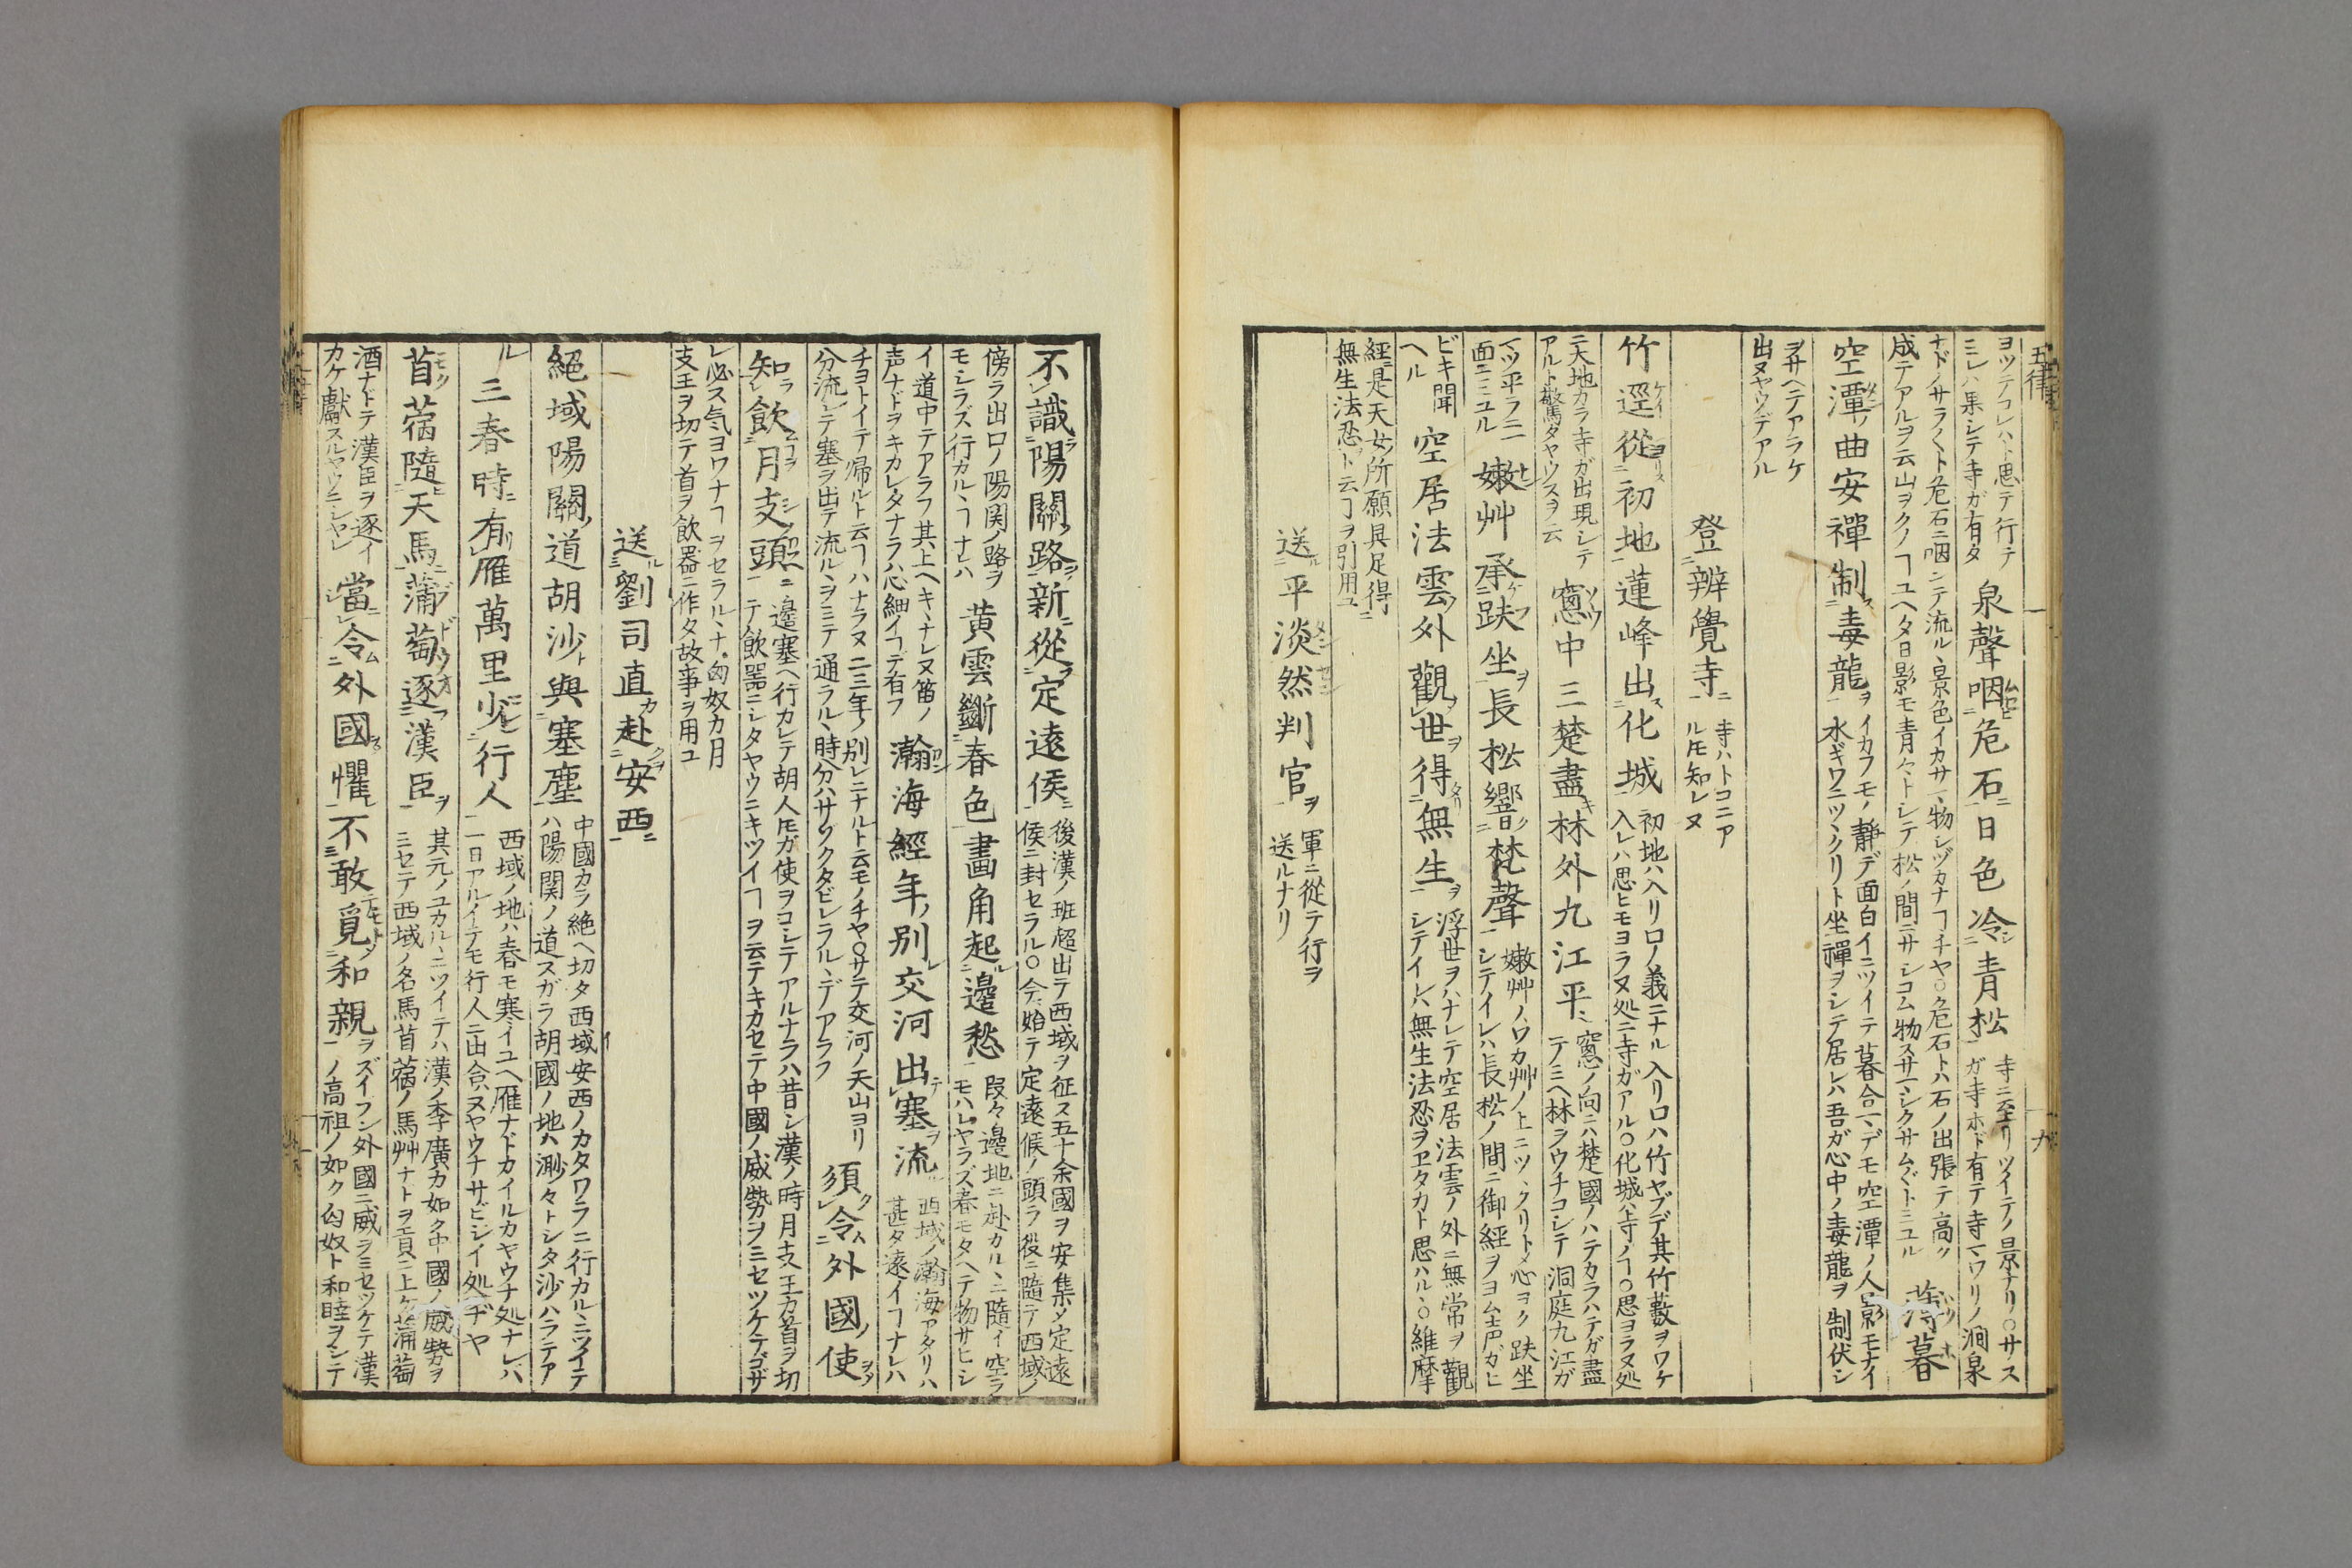 五律
ヨツテコレハト思テ行テ
ミレハ果シテ寺ガ有タ
泉聲咽危石日色冷青松
寺ニ至リツイテノ景ナリ○サノス
ガ寺ホド有テ寺マワリノ澗泉
ナドノサラ〱ト危石ニ咽ンテ流ル丶景色イカサマ物シヅカナヿチヤ○危石トハ石ノ出張テ高ク
成テアルヲ云山ヲクノヿユヘタ日影モ青々トシテ松ノ間ニサシコム物スサマシクサムグトミユル
薄暮
空潭曲安禪制毒龍
イカフモノ靜デ面白イニツイテ暮合マデモ空潭ノ人影モナイ
水ギワニツ丶クリト坐禪ヲシテ居レハ吾ガ心中ノ毒龍ヲ制伏シ
ヲサヘテアラケ
出ヌヤウデアル
登辨覺寺
寺ハトコニア
ルモ知レヌ
竹逕從初地蓮峰出化城
初地ハ入リ口ノ義ニナル入リ口ハ竹ヤブデ其竹藪ヲワケ
入レハ思ヒモヨラヌ処ニ寺ガアル○化城ハ寺ノヿ○思ヨラヌ処
ニ大地カラ寺ガ出現シテ
アルト驚タヤウスヲ云
窻中三楚盡林外九江平
窻ノ向ニハ楚國ノハテカラハテガ盡
テミヘ林ヲウチコシテ洞庭九江ガ
マツ平ラニ
面ニミユル
嫩艸承趺坐長松響梵聲
嫩艸ノワカ艸ノ上ニツ丶クリトメ心ヨク趺坐
シテイレハ長松ノ間ニ御經ヲヨム声ガヒ
ビキ聞
ヘル
空居法雲外觀世得無生
浮世ヲハナレテ空居法雲ノ外ニ無常ヲ觀
シテイレハ無生法忍ヲヱタカト思ハル丶○維摩
經ニ是天女ノ所願具足得
無生法忍ト云ヿヲ引用ユ
送平淡然判官
軍ニ從テ行ヲ
送ルナリ
不識陽關路新從定遠侯
後漢ノ班超出テ西域ヲ征ス五十余國ヲ安集メ定遠
侯ニ封セラル○今始テ定遠候ノ頭ラ役ニ隨テ西域ノ
傍ラ出口ノ陽関ノ路ヲ
モシラズ行カル丶ヿナレハ
黄雲斷春色畫角起邊愁
段々邊地ニ赴カル丶ニ隨イ空ラ
モハレヤラズ春モタヘテ物サヒシ
イ道中テアラフ其上ヘキ丶ナレヌ笛ノ
声ナドヲキカレタナラハ心細イヿデ有フ
瀚海經年別交河出塞流
西域ノ瀚海アタリハ
甚タ遠イヿナレハ
チヨトイテ帰ルト云ヿハナラヌ二三年ノ別レニナルト云モノチヤ○サテ交河ノ天山ヨリ
分流レテ塞ヲ出テ流ル丶ヲミテ通ラル時分ハサゾクタビレラル丶デアラフ
須令外國使
知飲月支頭
邊塞ヘ行カレテ胡人𪜈ガ使ヲコシテアルナラハ昔シ漢ノ時月支王カ首ヲ切
テ飲噐ニシタヤウニキツイヿヲ云テキカセテ中國ノ威勢ヲミセツケテゴザ
レ必ス気ヲヨワナヿヲセラル丶ナ匈奴カ月
支王ヲ切テ首ヲ飲器ニ作タ故事ヲ用ユ
送劉司直赴安西
絕域陽關道胡沙與塞塵
中國カラ絶ヘ切タ西域安西ノカタワラニ行カル丶ニツイテ
ハ陽関ノ道スガラ胡國ノ地ハ渺々トシタ沙ハラテア
ル
三春時有雁萬里少行人
西域ノ地ハ春モ寒イユヘ雁ナドカイルカヤウナ処ナレバ
一日アルイテモ行人ニ出合ヌヤウナサビシイ処ヂヤ
苜蓿隨天馬蒲萄逐漢臣
其元ノユカル丶ニツイテハ漢ノ李廣カ如ク中國ノ威勢ヲ
ミセテ西域ノ名馬苜蓿ノ馬艸ナトヲ貢ニ上ケ蒲萄
酒ナトテ漢臣ヲ逐イ
カケ獻スルヤウニシヤレ
當令外國懼不敢覓和親
ズイフン外國ニ威ラミセツケテ漢
ノ高祖ノ如ク匈奴ト和睦ヲシテ